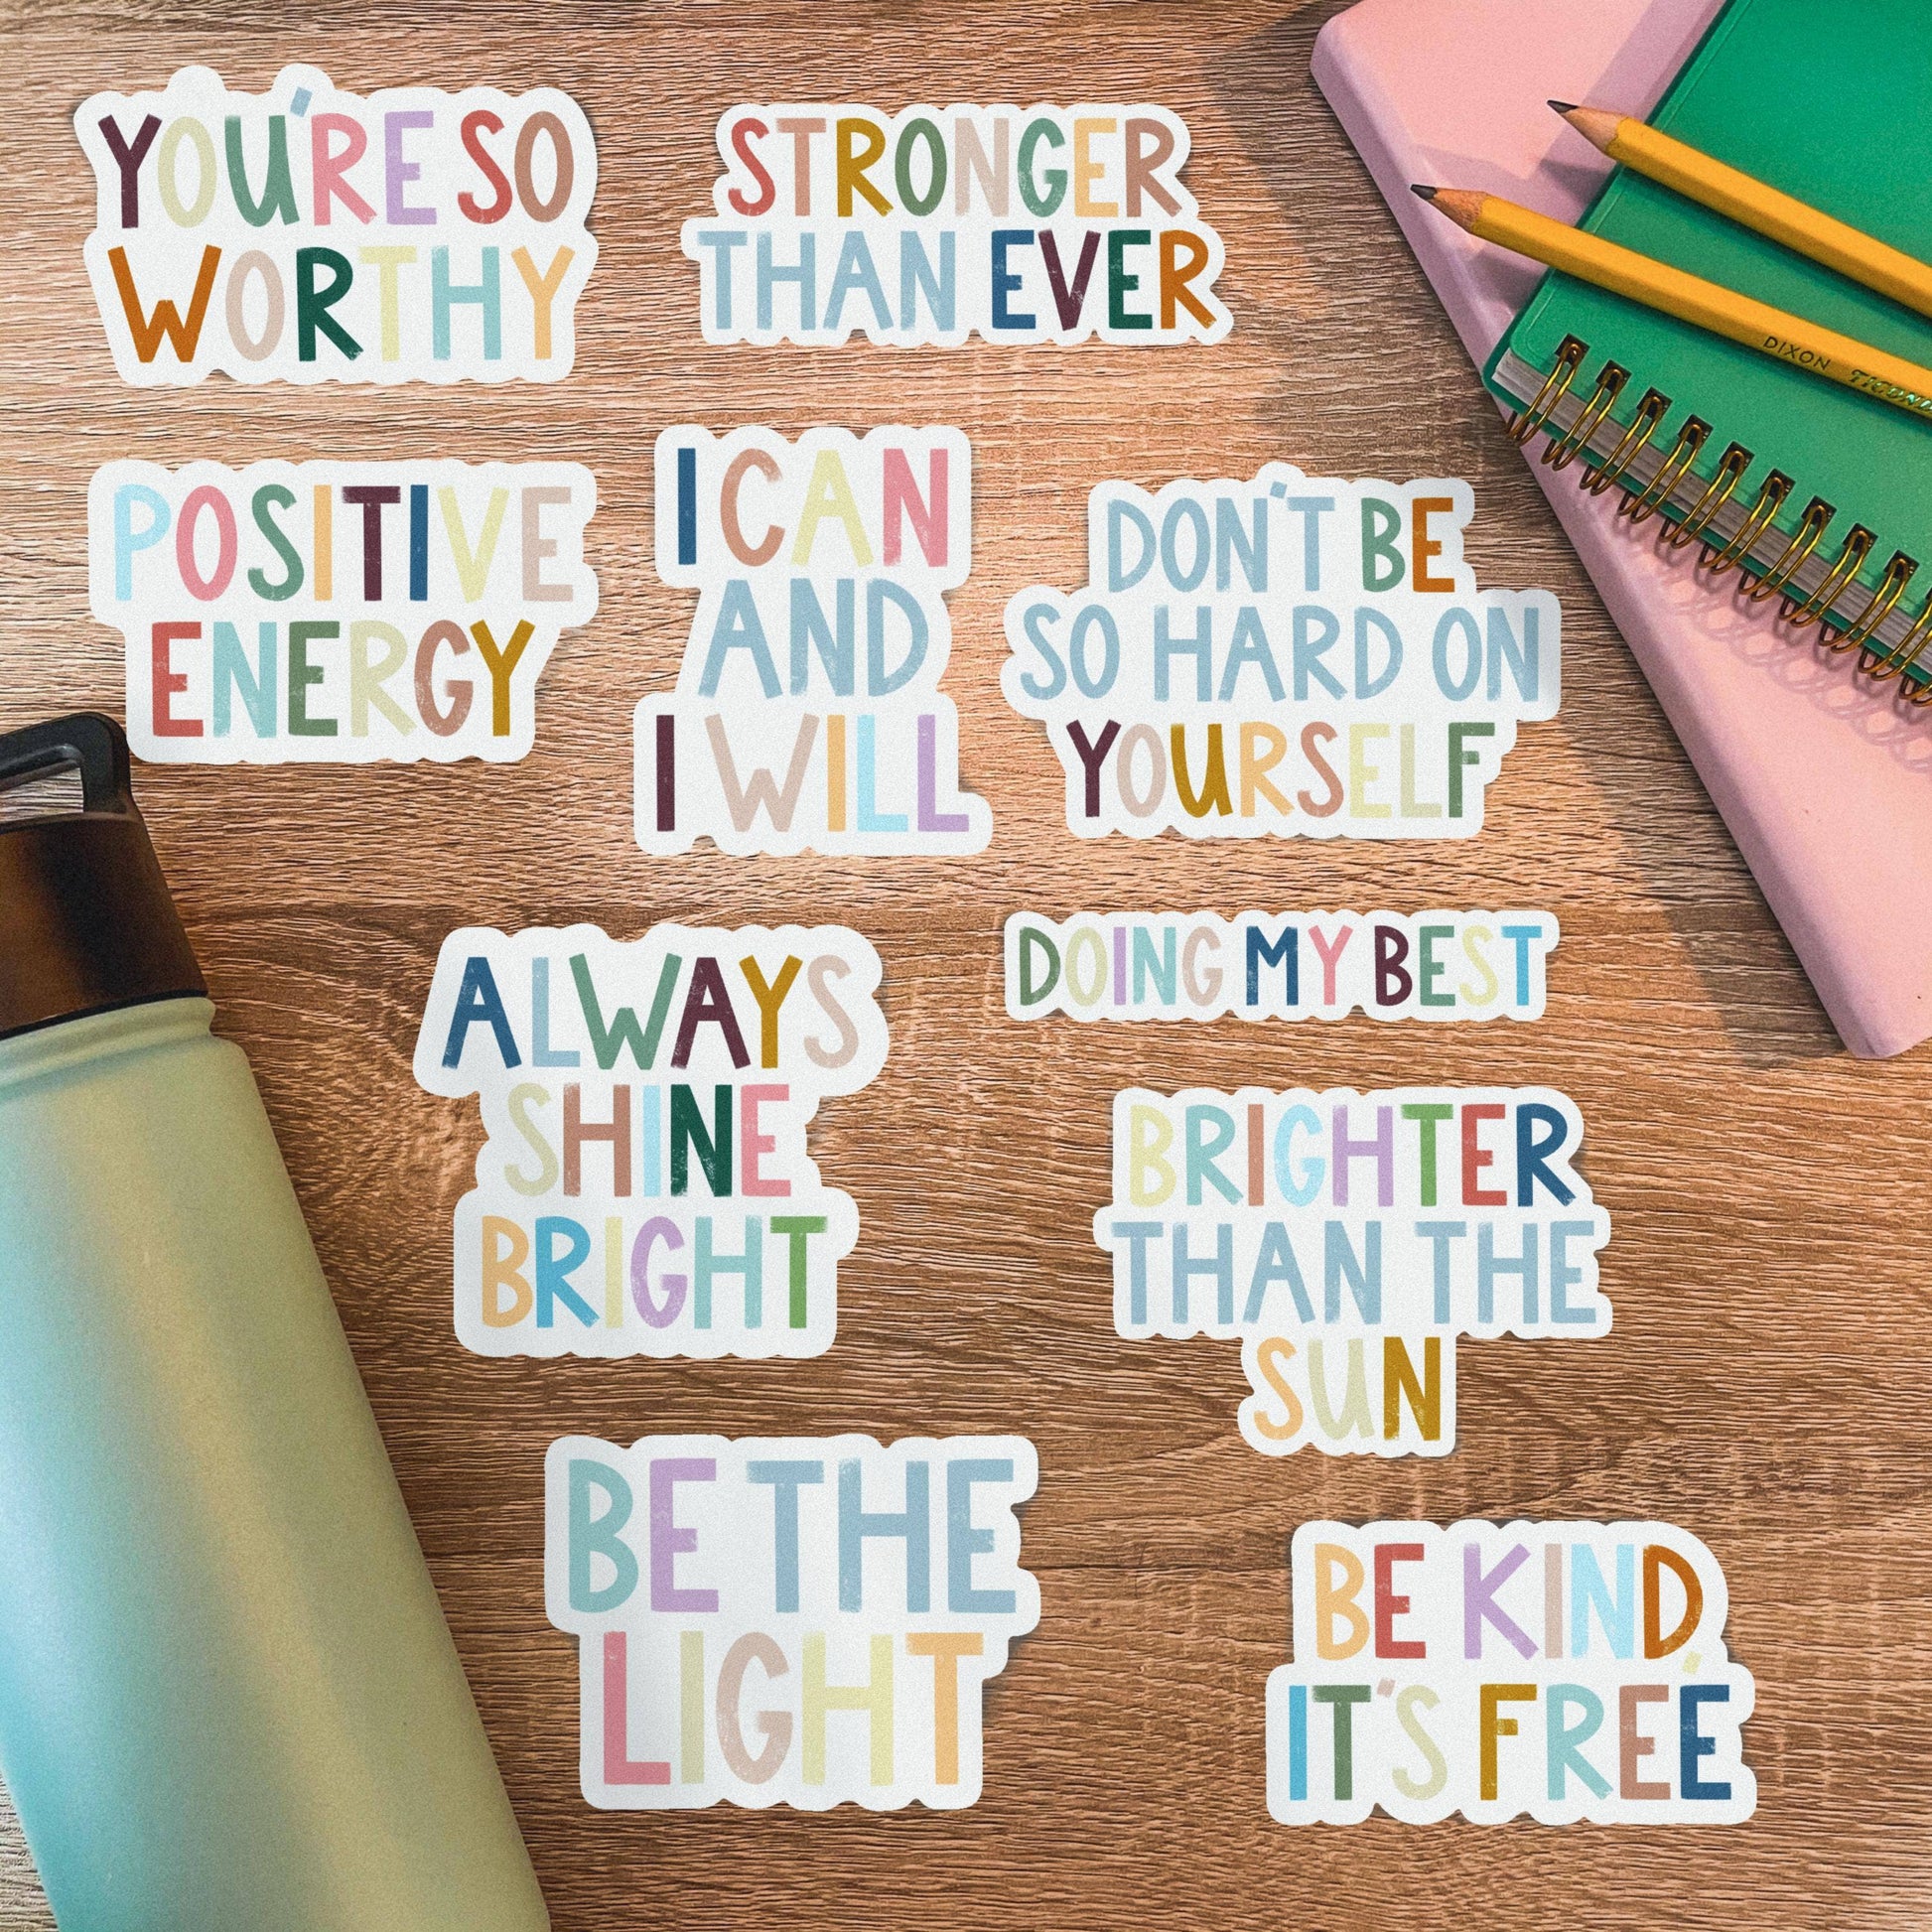 YOU'RE SO
WORTHY
STRONGER
THAN EVER
DIXON
POSITIVE
ENERGY
I CAN
AND
I WILL
DON'T BE
SO HARD ON
YOURSELF
ALWAYS
SHINE
BRIGHT
DOING MY BEST
BRIGHTER
THAN THE
SUN
BE THE
LIGHT
BE KIND,
IT'S FREE